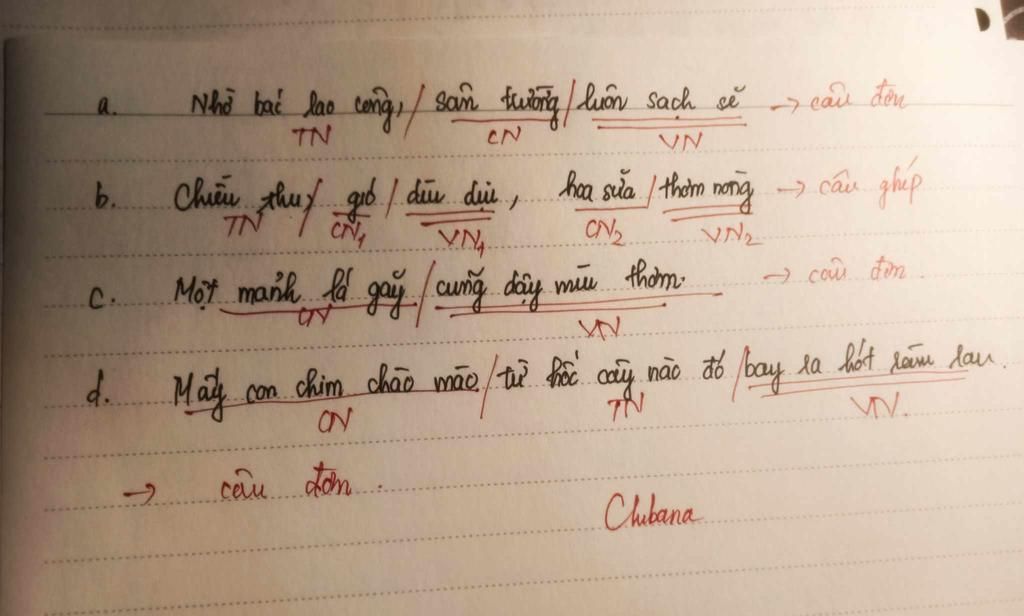 a. Nhờ bác lao công, / sân trường / luôn sạch sẽ → câu đơn
TN CN VN
b. Chiều thu / gió / dìu dịu, hoa sữa / thơm nồng → câu ghép
TN CN₁ VN₁ CN₂ VN₂
c. Một mảnh lá gãy / cũng dậy mùi thơm. → câu đơn
CN VN
d. Mấy con chim chào mào / từ hốc cây nào đó / bay ra hót râm ran.
CN TN VN.
→ câu đơn.
Chibana